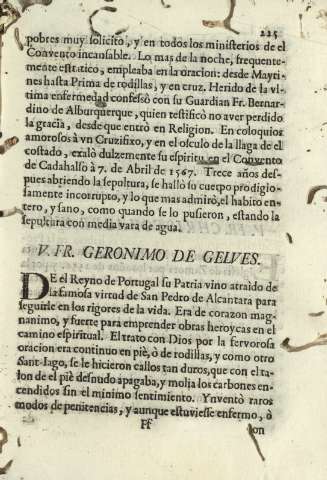 225
pobres muy solicito, y en todos los ministerios de el
Convento incansable. Lo mas de la noche, frequente-
mente estatico, empleaba en la oracion: desde Mayti-
nes hasta Prima de rodillas, y en cruz. Herido de la vl-
tima enfermedad confessò con su Guardian Fr. Bernar-
dino de Alburquerque, quien testificò no aver perdido
la gracia, desde que entrò en Religion. En coloquios
amorosos à vn Cruzifixo, y en el osculo de la llaga de el
costado, exalò dulzemente su espiritu en el Convento
de Cadahalso à 7. de Abril de 1567. Trece años des-
pues abriendo la sepultura, se hallò su cuerpo prodigio-
samente incorrupto, y lo que mas admirò, el habito en-
tero, y sano, como quando se lo pusieron, estando la
sepultura con media vara de agua.
V. FR. GERONIMO DE GELVES.
DE el Reyno de Portugal su Patria vino atraido de
la famosa virtud de San Pedro de Alcantara para
seguirle en los rigores de la vida. Era de corazon mag-
nanimo, y fuerte para emprender obras heroycas en el
camino espiritual. El trato con Dios por la fervorosa
oracion era continuo en piè, ò de rodillas, y como otro
Sant-Iago, se le hicieron callos tan duros, que con el ta-
lon de el piè desnudo apagaba, y molia los carbones en-
cendidos sin el minimo sentimiento. Ynventò raros
modos de penitencias, y aunque estuviesse enfermo, ò
Ff
con